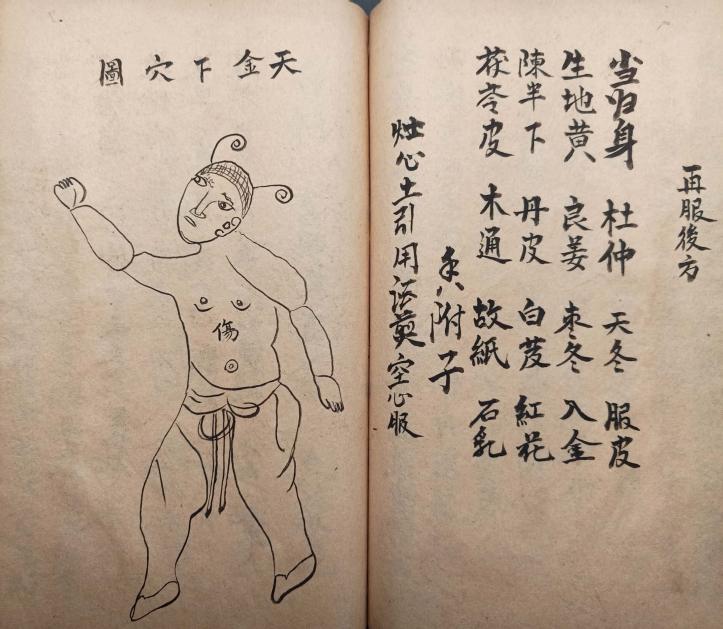 再服後方
当归身 杜仲 天冬 服皮
生地黄 良姜 冬 入金
陳半下 丹皮 白芨 紅花
茯苓皮 木通 故紙 石乳
附子
灶心土引用酒煎空心服
天金下穴圖
傷